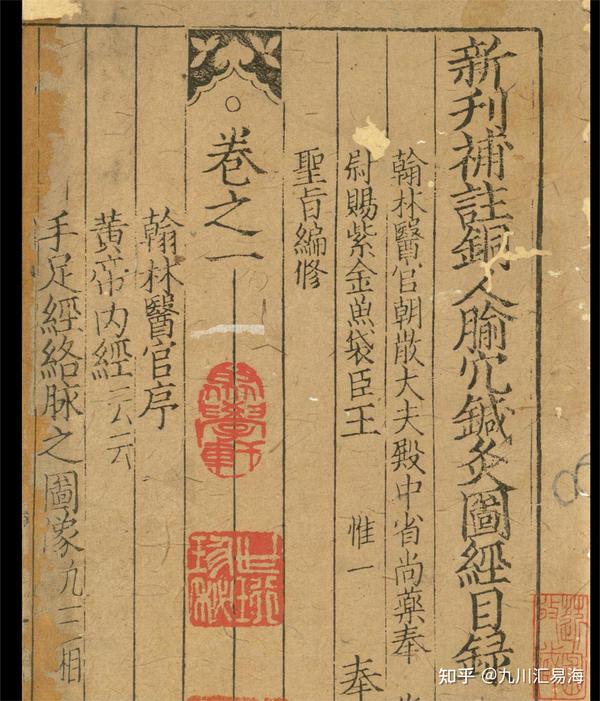 新刋補註銅人腧穴鍼灸圖經目録
翰林醫官朝散大夫殿中省尚藥奉
尉賜紫金魚袋臣王 惟一 奉
聖旨編修
卷之一
翰林醫官序
黃帝內經云云
手足經絡脉之圖像
知乎 @九川汇易海